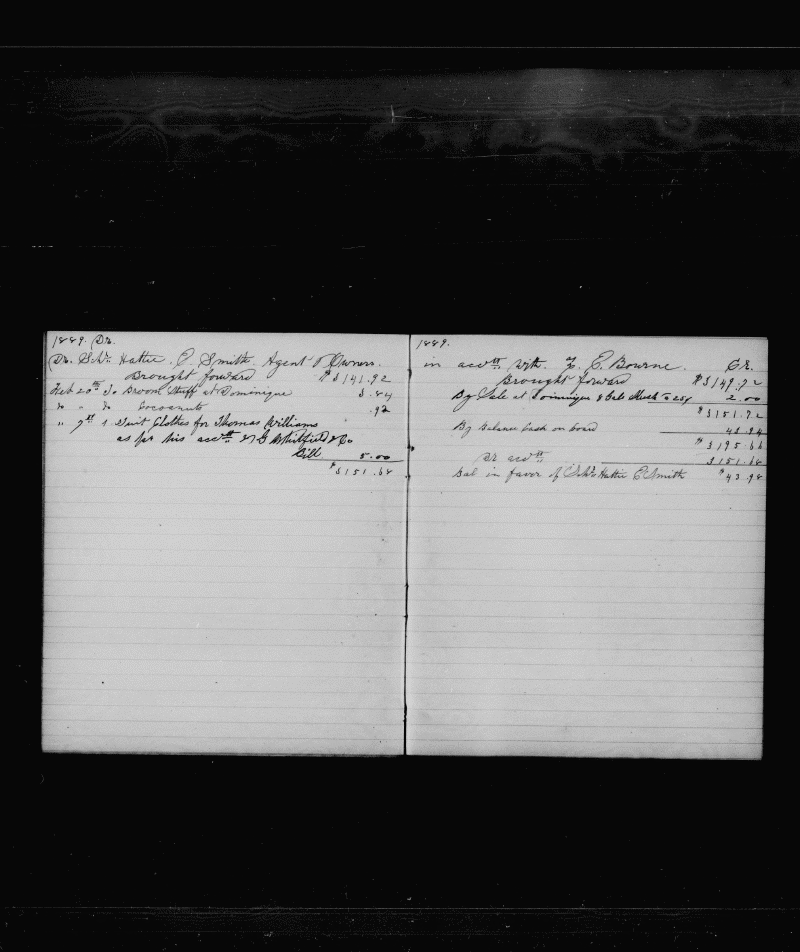 1889. Dr.
Dr. Schr. Hattie E. Smith. Agent & Owners.
Brought forward $3141.92
Feb 20th To Broom Stuff at Dominique 3.84
" " To Cocoanuts .92
" 7th 1 Suit Clothes for Thomas Williams
as per his acctt &Co
Bill 5.00
$3151.68
1889.
in acctt with F. E. Bourne. Cr.
Brought forward $3149.92
By Sale at Dominique 8 Gals @ 25¢ 2.00
$3151.92
By Balance Cash on board
$3195.66
Dr acctt 3151.68
Bal in favor of Schr Hattie E Smith $43.98